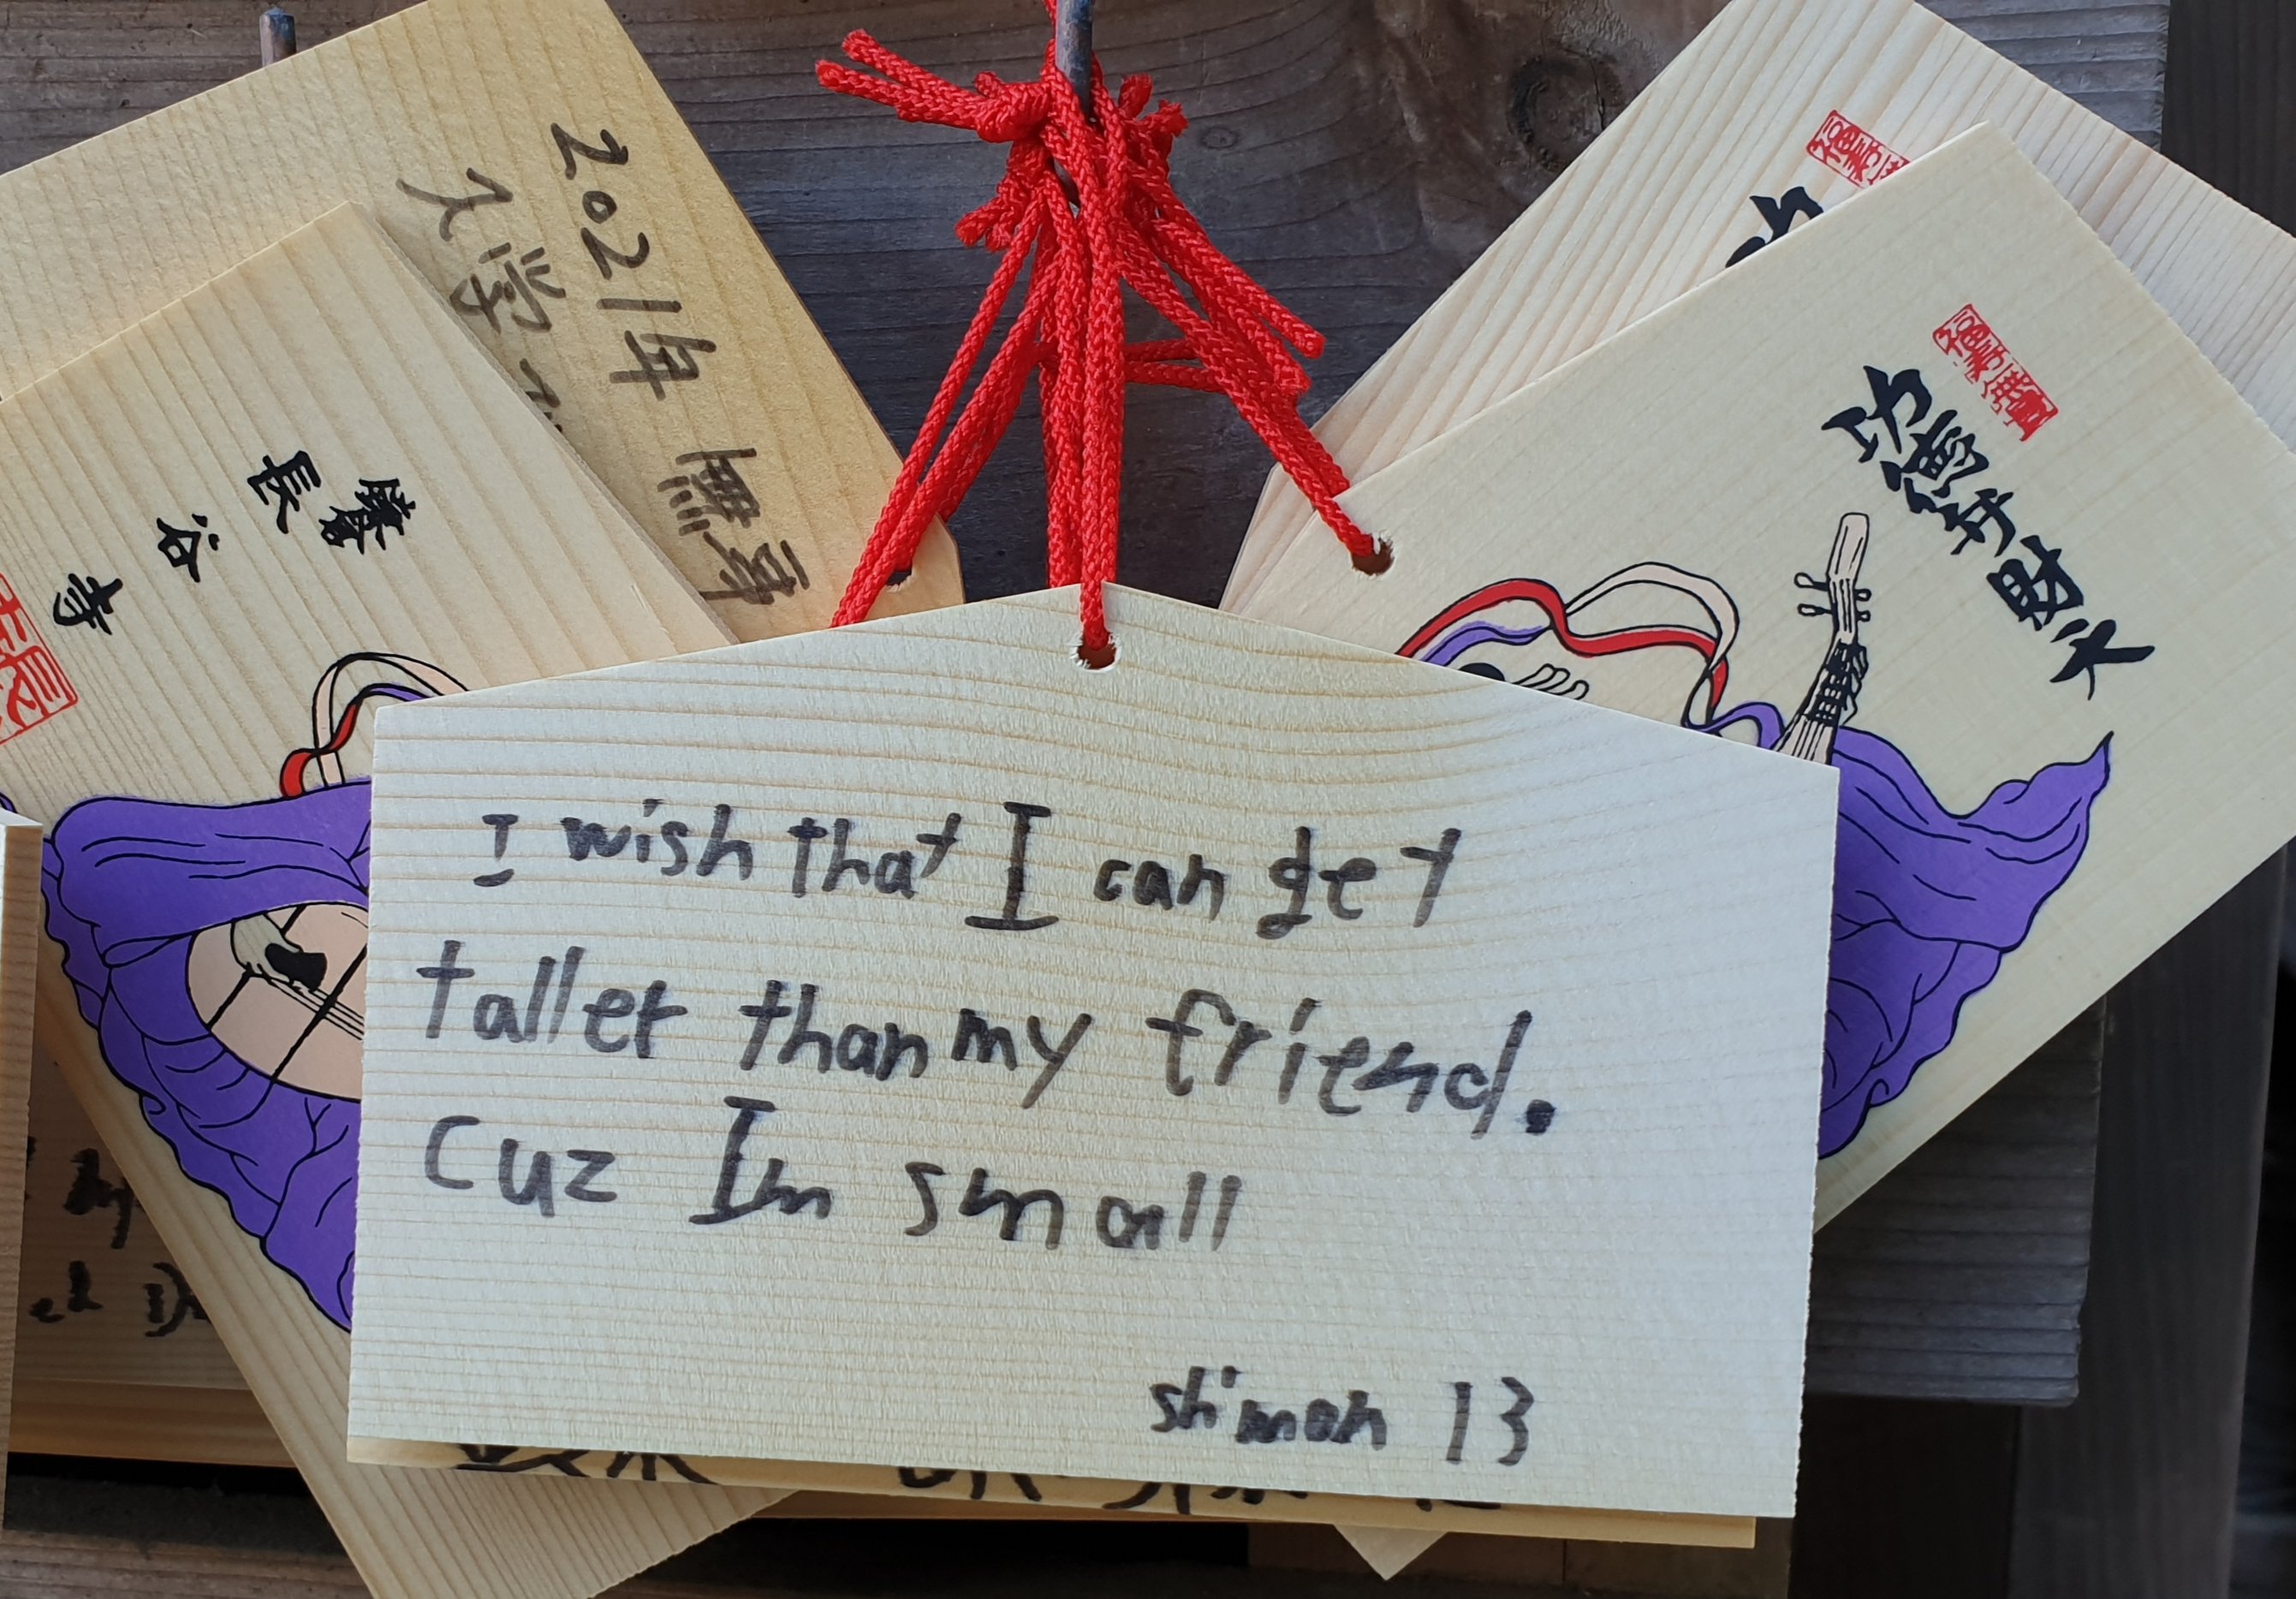 2021年 無事
入学
鎌倉
長谷寺
功徳弁財天
I wish that I can get
taller than my friend.
Cuz Im small
shimon 13